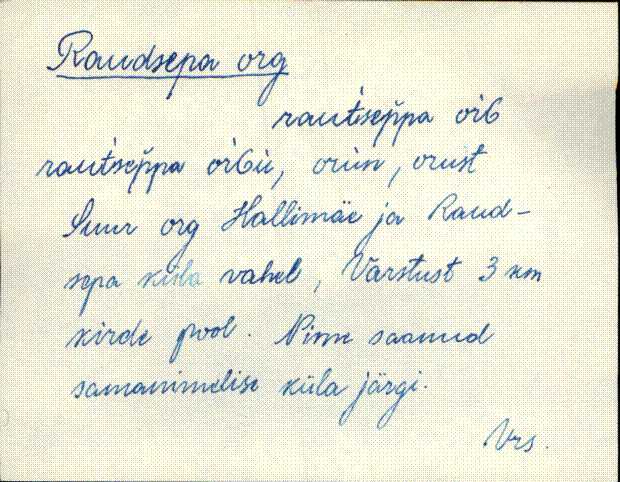 Raudsepa org
raut'seppa oŕG
raut'seppa oŕGu, orun, orust
Suur org Hallimäe ja Raud-
sepa küla vahel, Varstust 3 km
kirde pool. Nime saanud
samanimelise küla järgi.
Vrs.